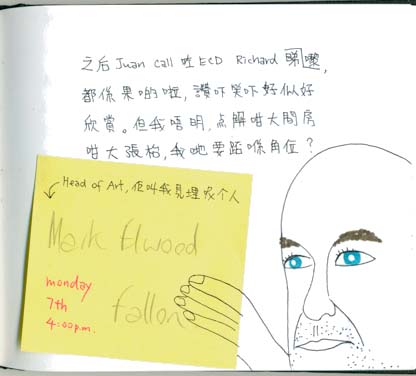 之后 Juan call 咗 ECD Richard 睇,
都係果啲啦, 讚吓笑吓好似好
欣赏。但我唔明, 点解咁大間房
咁大張枱, 我哋要踎喺角位?
Head of Art, 佢叫我見埋呢个人
Mark Elwood
Fallon
monday
7th
4:00p.m.